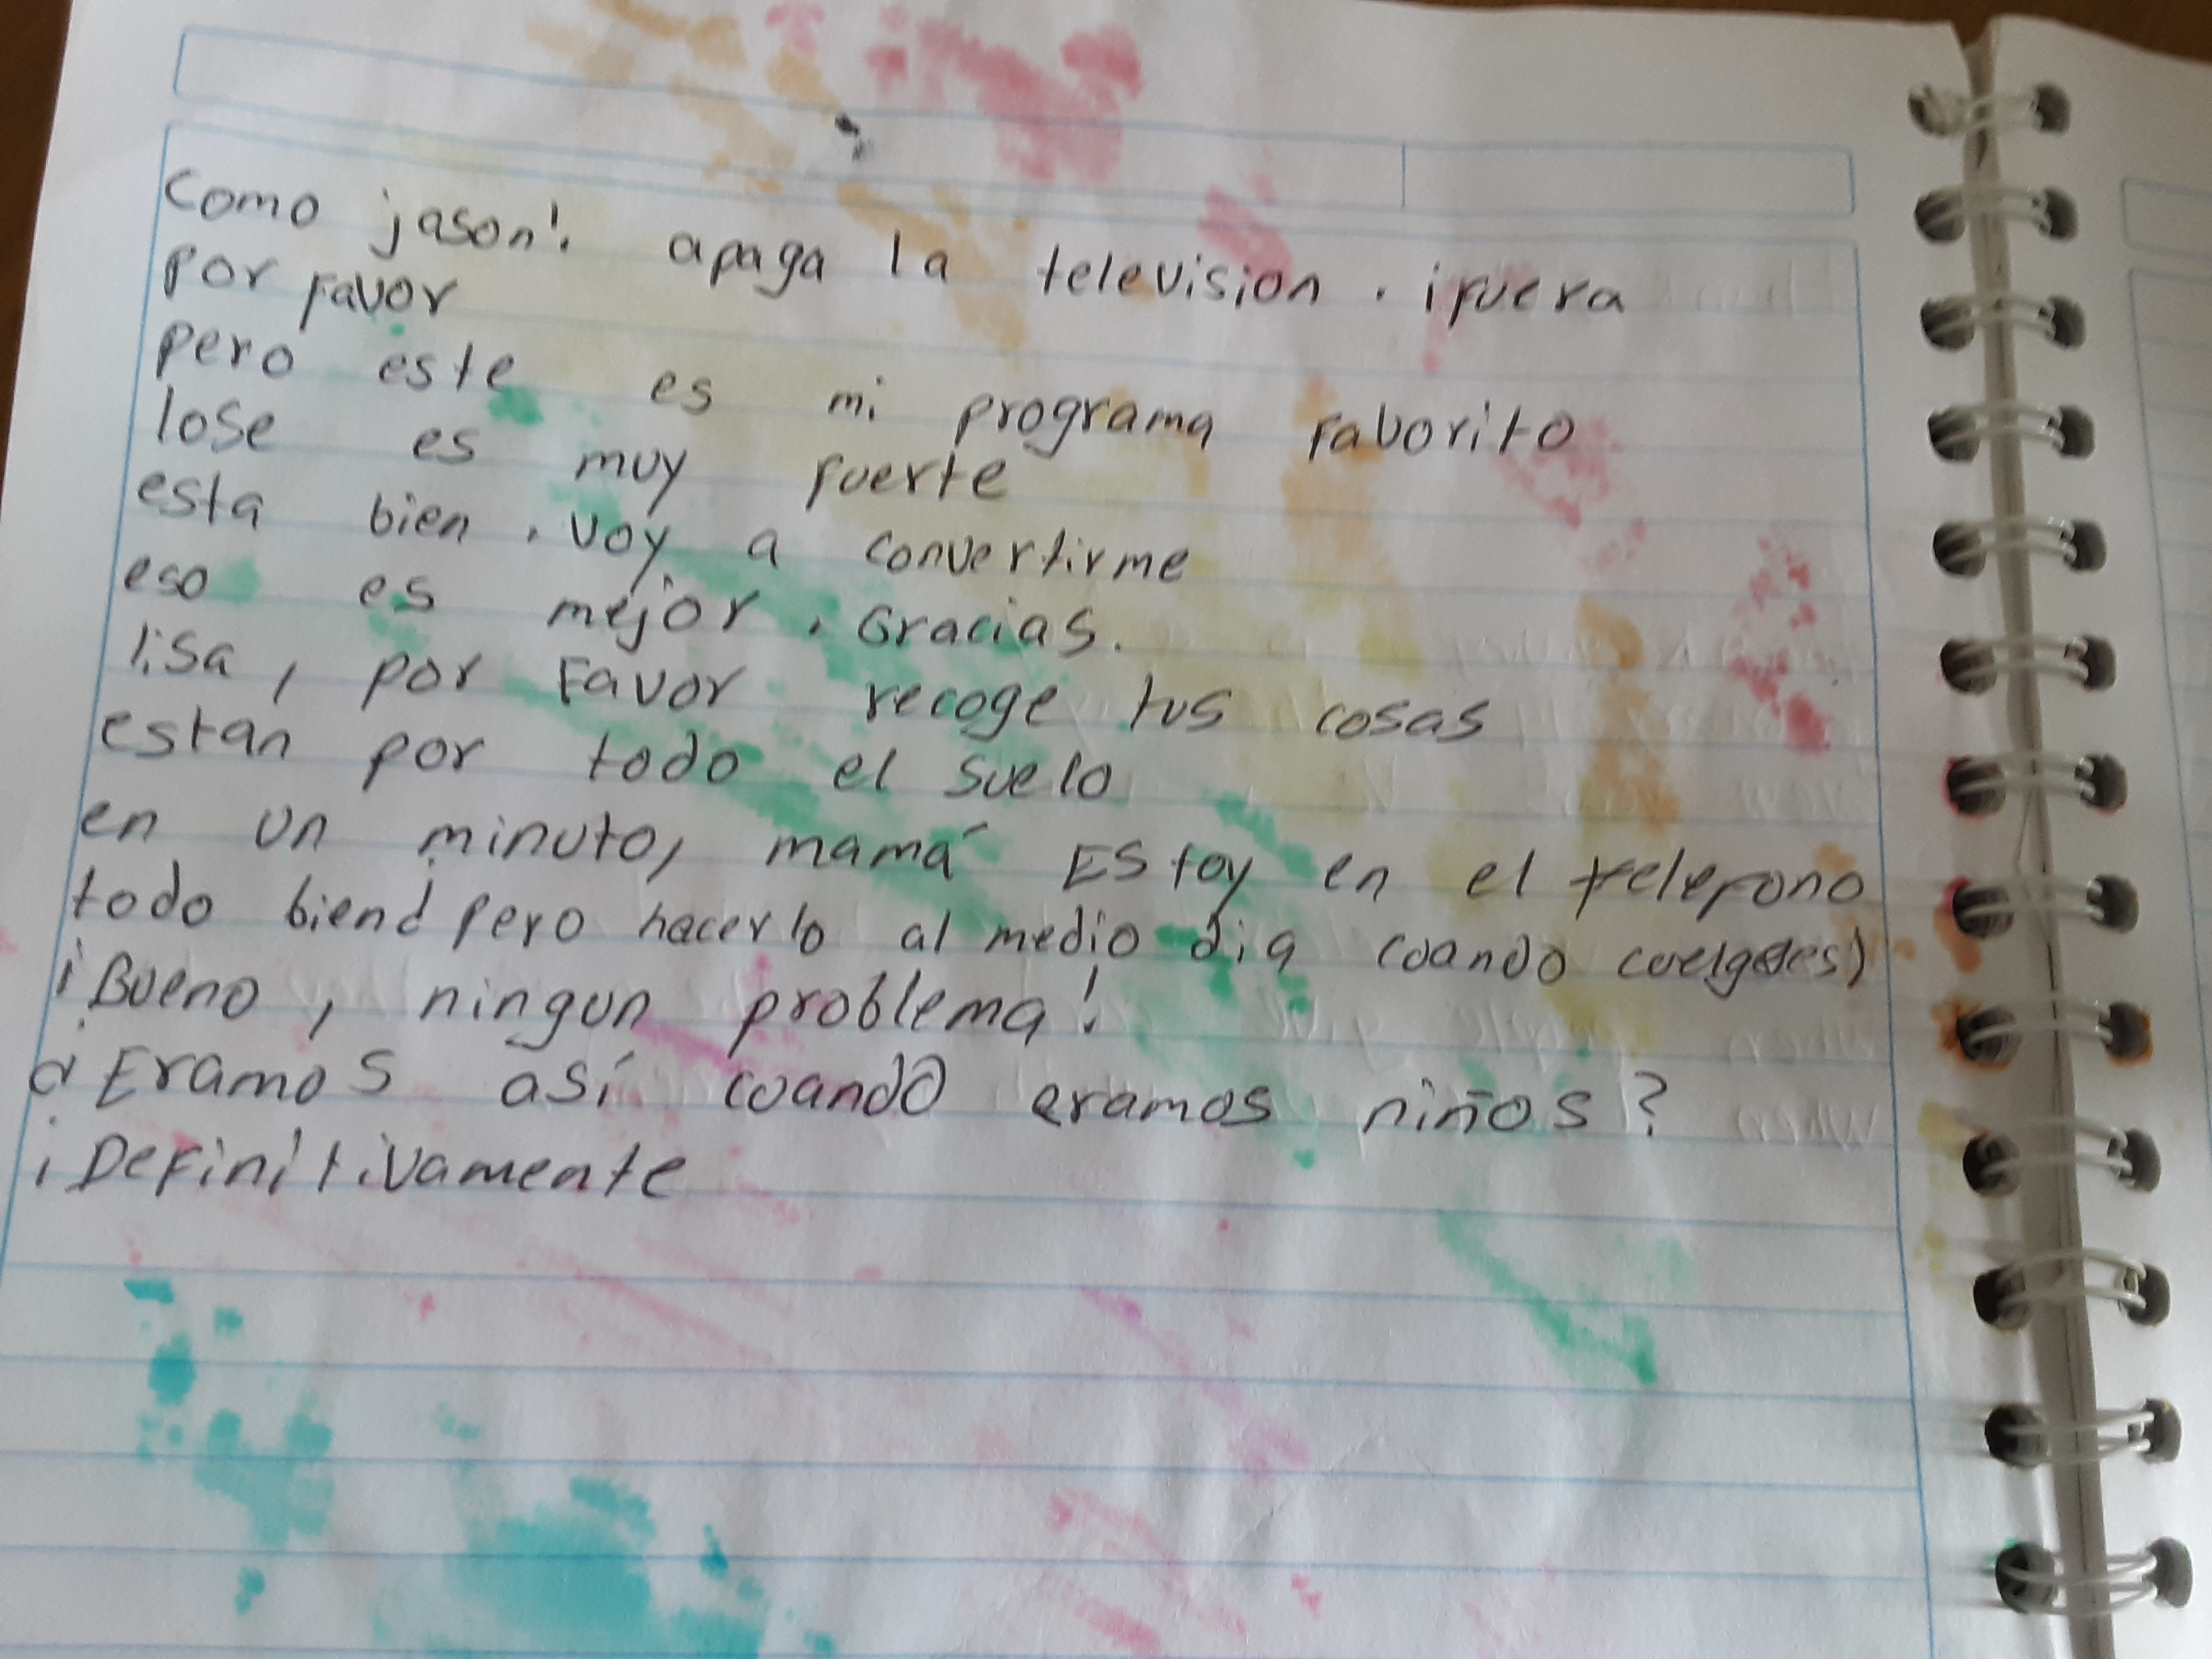 como jason!. apaga la television. ¡fuera
por favor
pero este es mi programa faborito
lose es muy fuerte
esta bien. voy a convertirme
eso es mejor. Gracias.
lisa, por Favor recoge tus cosas
estan por todo el suelo
en un minuto, mamá EStoy en el telefono
todo bien pero hacerlo al medio dia cuando
¡Bueno, ningun problema!
¿Eramos así cuando eramos niños?
¡Definitivamente